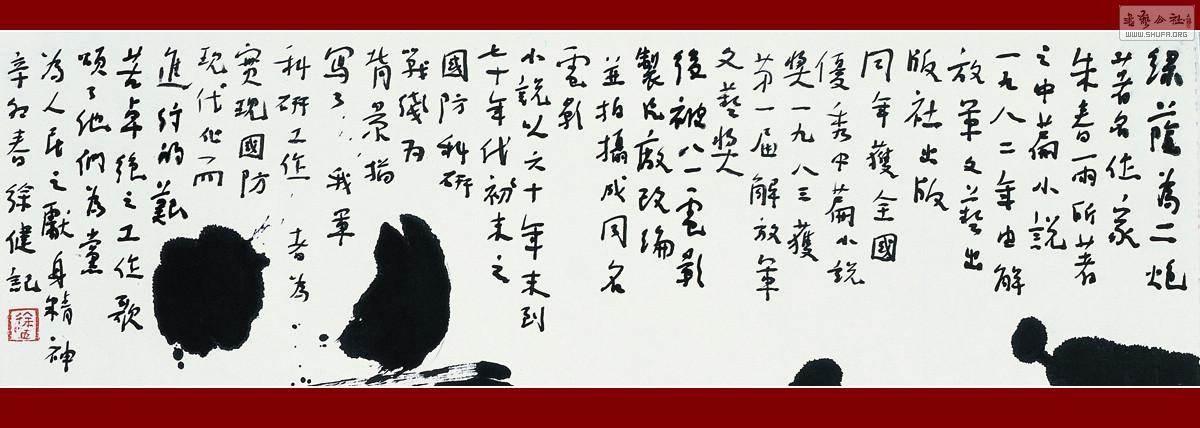 绿蔭為二炮
著名作家
朱春雨所著
之中篇小説
一九八二年由解
放軍文藝出
版社出版
同年獲全國
優秀中篇小説
獎一九八三獲
第一届解放軍
文藝獎
後被八一電影
製片廠改編
並拍攝成同名
電影
小說以六十年末到
七十年代初末之
國防科研
戰綫为
背景描
寫了我軍
科研工作者為
實現國防
現代化而
進行的艱
苦卓绝之工作歌
頌了他們為黨
為人民之獻身精神
辛卯春徐健記
WWW.SHUFA.ORG